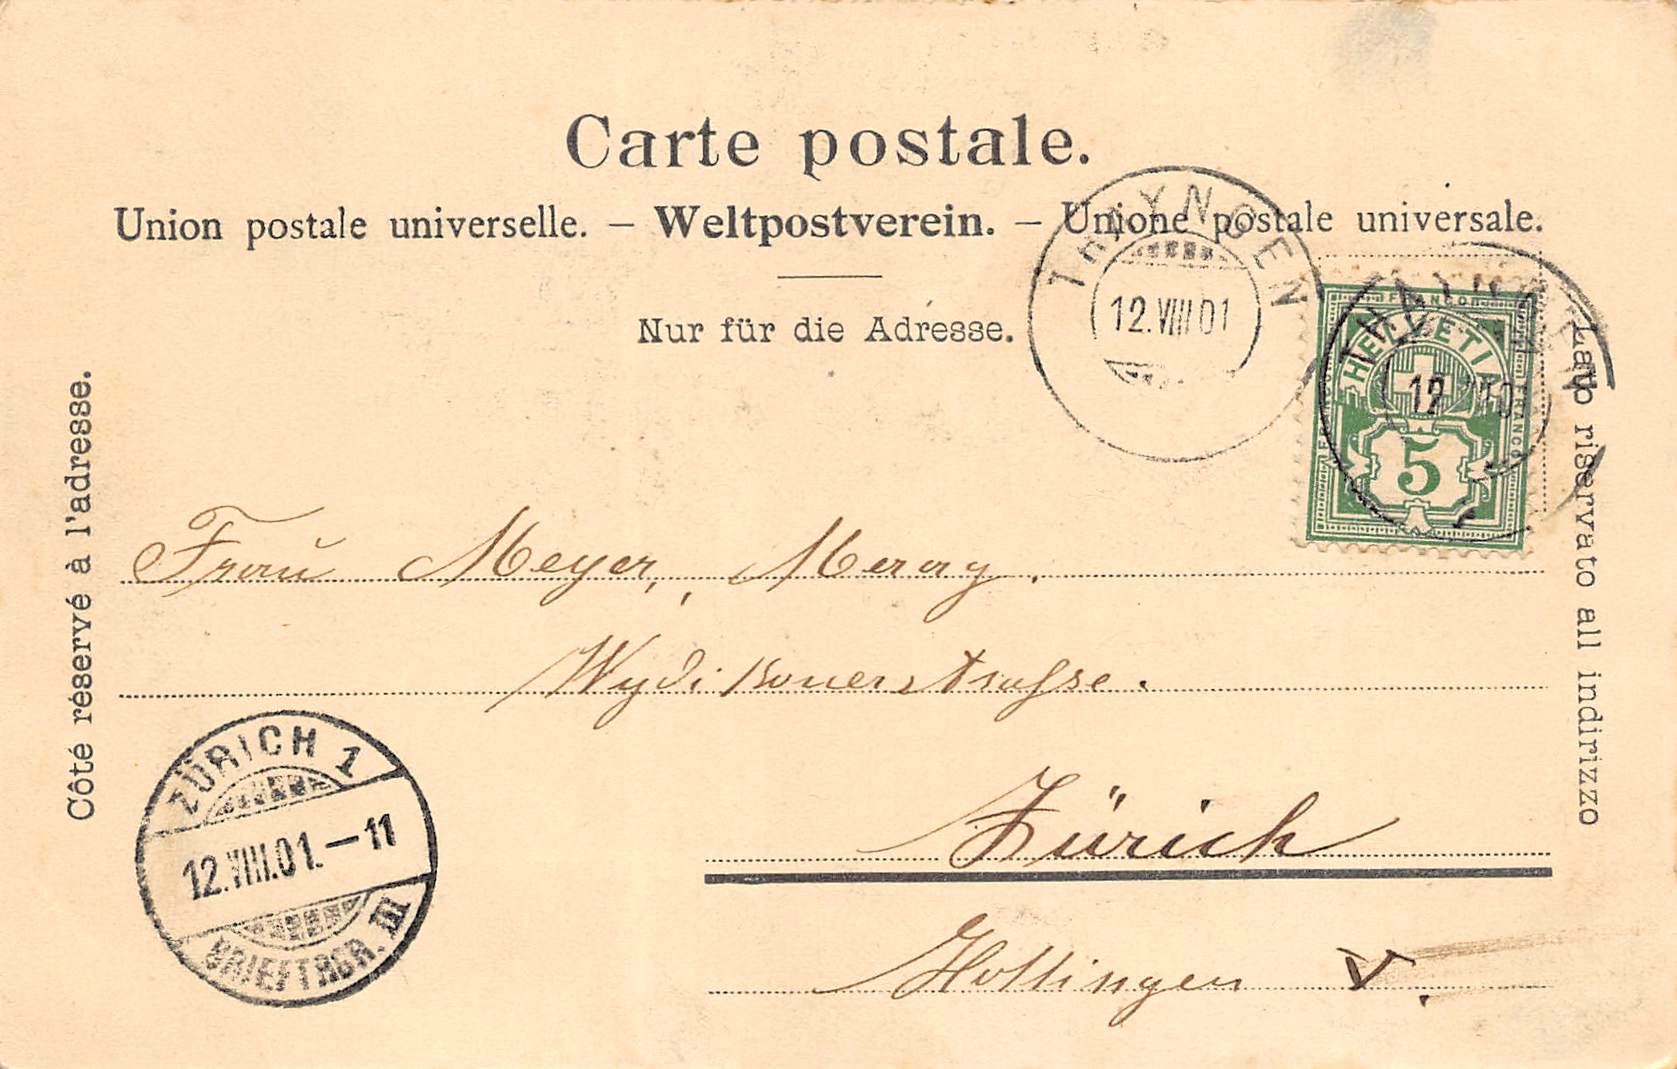 Carte postale.
Union postale universelle. – Weltpostverein. – Unione postale universale.
Nur für die Adresse.
Côté réservé à l'adresse.
Lato riservato all indirizzo
THAYNGEN
12.VIII.01
THAYNGEN
12
FRANCO
HELVETIA
FRANCO
5
Frau Meyer,
Wydikonerstrasse.
Zürich
Hottingen V.
ZÜRICH 1
12.VIII.01.–11
BRIEFTRGR. III